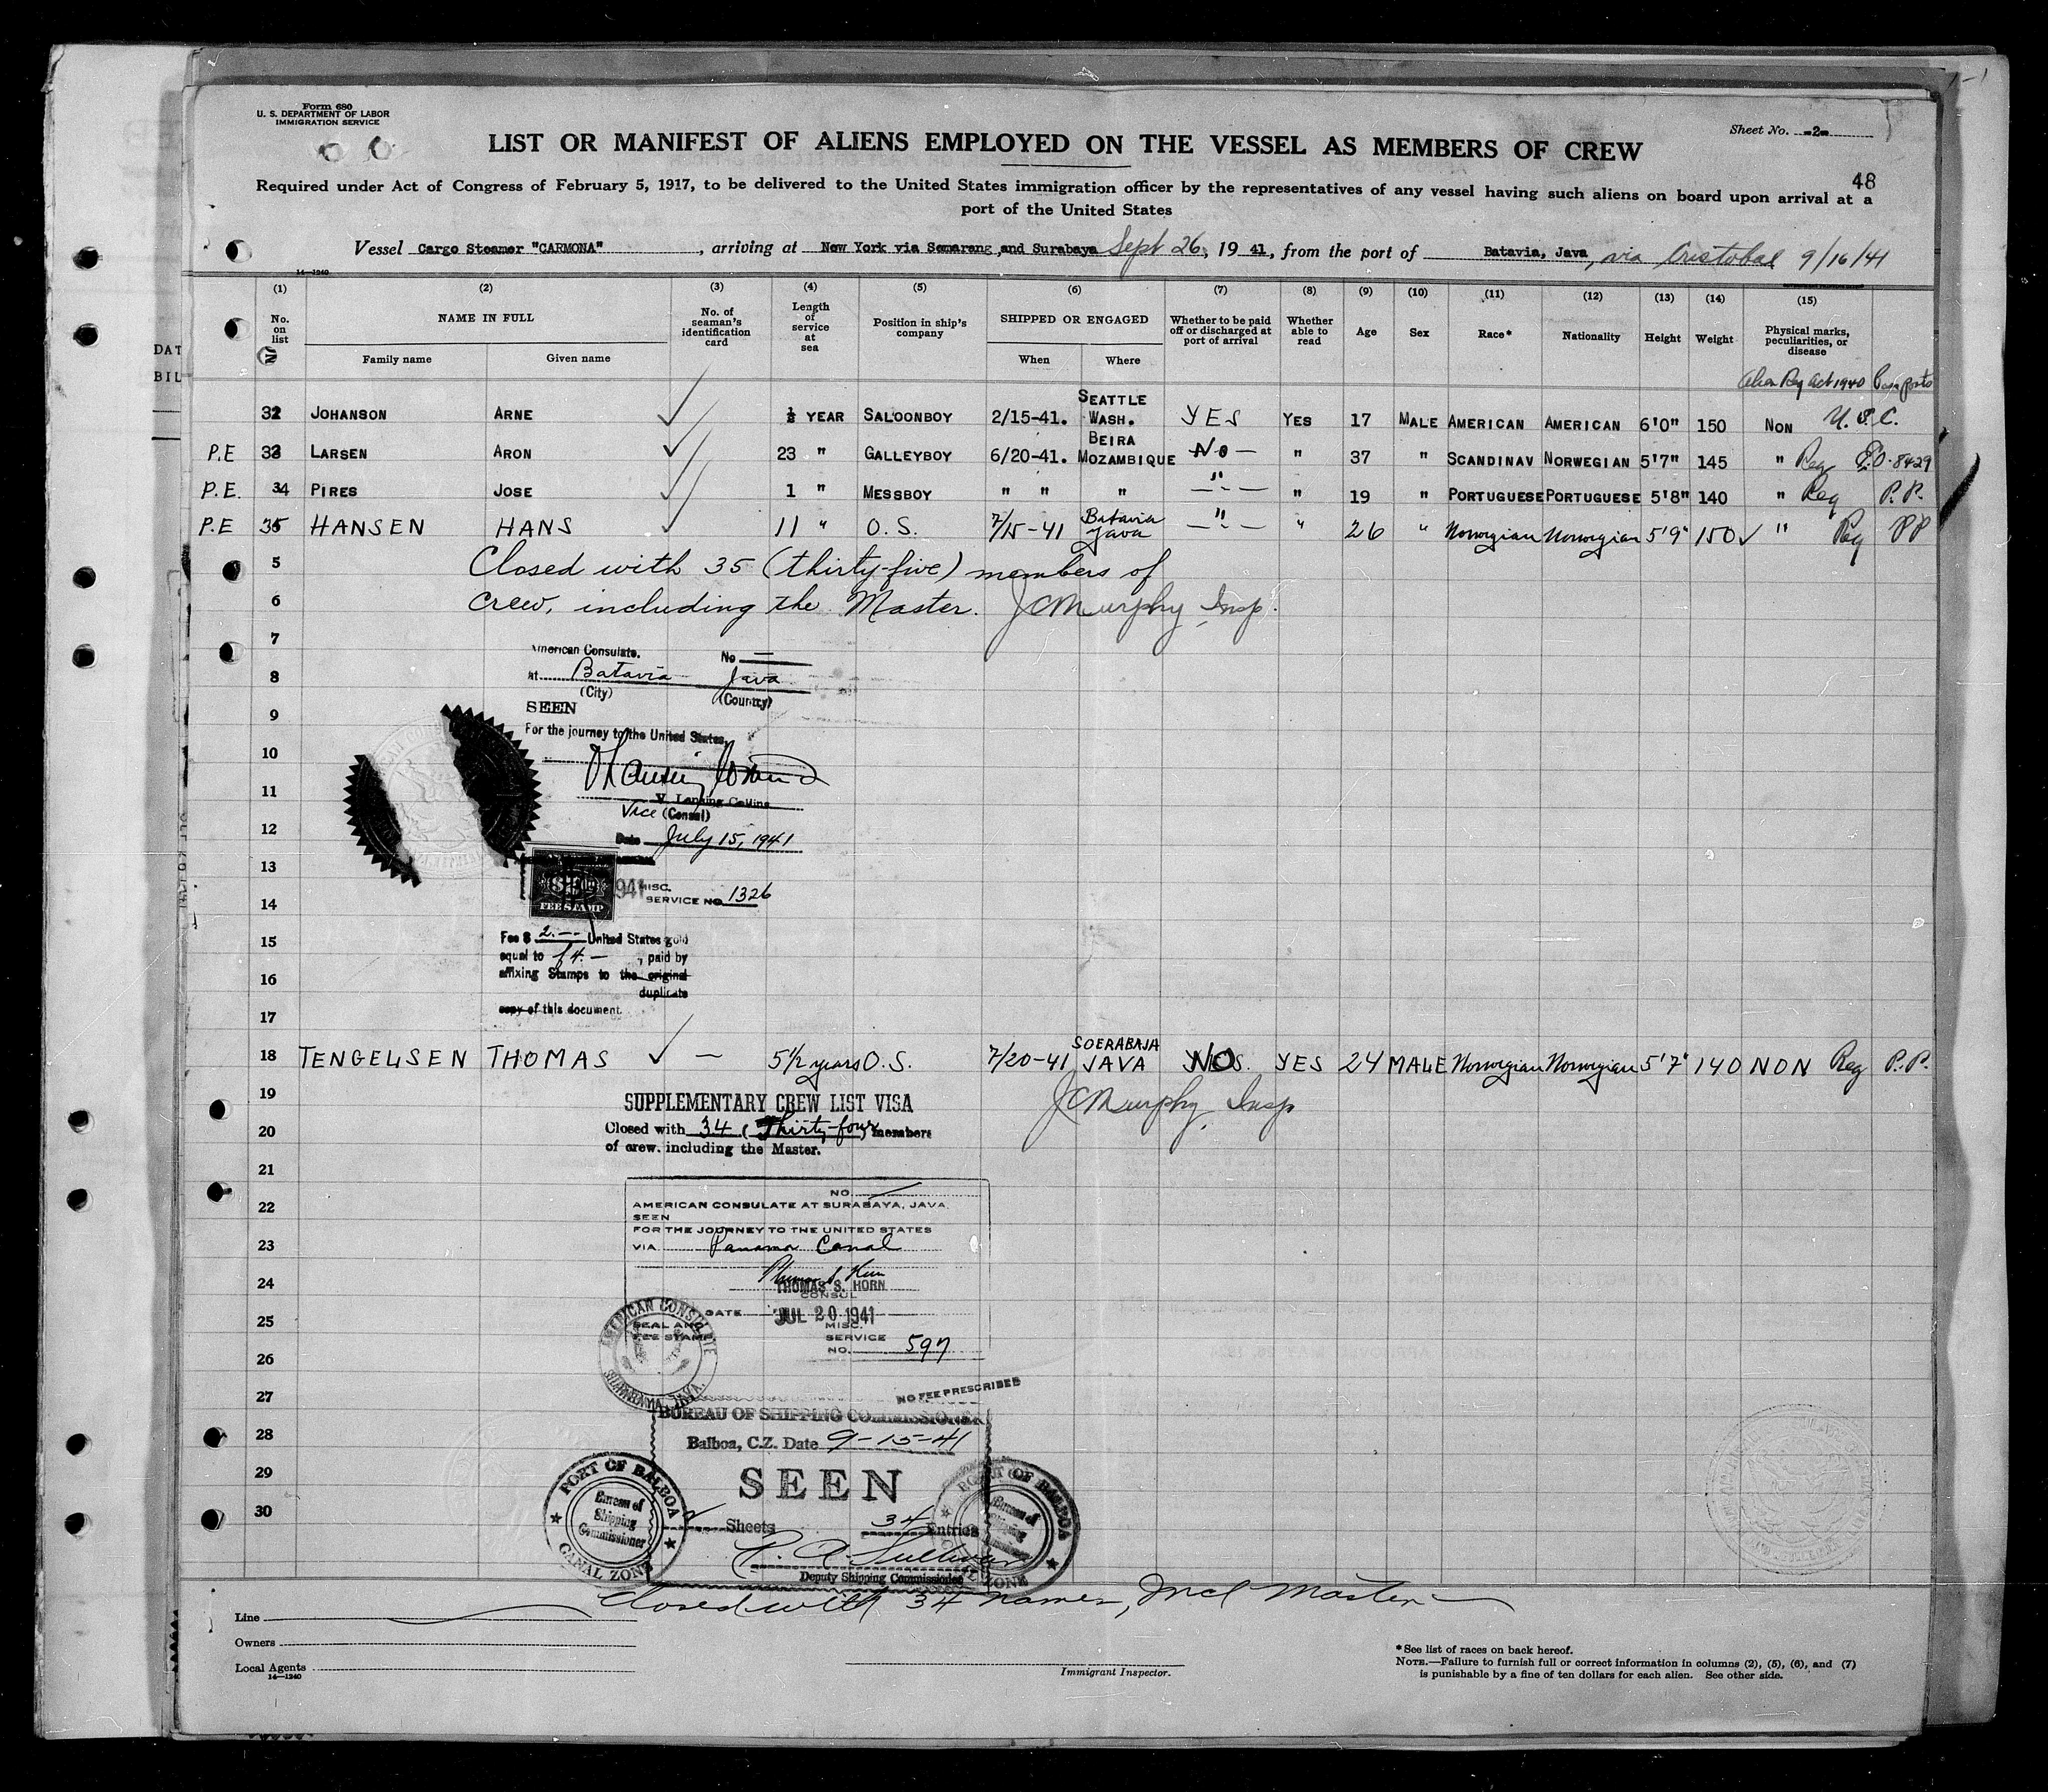 Form 680
U. S. DEPARTMENT OF LABOR
IMMIGRATION SERVICE
Sheet No. -2-
LIST OR MANIFEST OF ALIENS EMPLOYED ON THE VESSEL AS MEMBERS OF CREW
48
Required under Act of Congress of February 5, 1917, to be delivered to the United States immigration officer by the representatives of any vessel having such aliens on board upon arrival at a
port of the United States
Vessel Cargo Steamer "CARMONA", arriving at New York via Semarang and Surabaya Sept 26, 1941, from the port of Batavia, Java, via Cristobal 9/16/41
14-1240
(1) (2) (3) (4) (5) (6) (7) (8) (9) (10) (11) (12) (13) (14) (15)
No. on list NAME IN FULL No. of seaman's identification card Length of service at sea Position in ship's company SHIPPED OR ENGAGED Whether to be paid off or discharged at port of arrival Whether able to read Age Sex Race* Nationality Height Weight Physical marks, peculiarities, or disease
Family name Given name When Where
Alien Reg Act 1940 Passports
32 JOHANSON ARNE ½ YEAR SALOONBOY 2/15-41. SEATTLE WASH. YES YES 17 MALE AMERICAN AMERICAN 6'0" 150 NON U.S.C.
P.E 33 LARSEN ARON 23 " GALLEYBOY 6/20-41. BEIRA MOZAMBIQUE No — " 37 " SCANDINAV NORWEGIAN 5'7" 145 " Reg E.O. 8429
P.E. 34 PIRES JOSE 1 " MESSBOY " " " — " — " 19 " PORTUGUESE PORTUGUESE 5'8" 140 " Reg P.P.
P.E 35 HANSEN HANS 11 " O.S. 7/15-41 Batavia Java — " — " 26 " Norwegian Norwegian 5'9" 150 ✓ " Reg PP
5 Closed with 35 (thirty-five) members of
6 crew, including the Master. JCMurphy, Insp.
7
American Consulate. No —
8 at Batavia Java
(City) (Country)
9 SEEN
For the journey to the United States.
10
11 V. Lansing Collins
Vice (Consul)
12 Date July 15, 1941
13
941 MISC.
14 FEE STAMP SERVICE NO. 1326
15 Fee $ 2.-- United States gold
equal to f4.— , paid by
16 affixing Stamps to the original
duplicate
17 copy of this document.
18 TENGELSEN THOMAS ✓ — 5½ years O.S. 7/20-41 SOERABAJA JAVA NO YES 24 MALE Norwegian Norwegian 5'7" 140 NON Reg P.P.
19 SUPPLEMENTARY CREW LIST VISA JCMurphy, Insp
20 Closed with 34 (Thirty-four) members
of crew, including the Master.
21
NO.
22 AMERICAN CONSULATE AT SURABAYA, JAVA.
SEEN
FOR THE JOURNEY TO THE UNITED STATES
23 VIA Panama Canal
24 THOMAS S. HORN
CONSUL
25 DATE JUL 20 1941
SEAL AND MISC.
FEE STAMP SERVICE
NO. 597
26 AMERICAN CONSULATE SURABAYA, JAVA.
27 NO FEE PRESCRIBED
BUREAU OF SHIPPING COMMISSIONER
28 Balboa, C.Z. Date 9-15-41
29 SEEN
PORT OF BALBOA Bureau of Shipping Commissioner CANAL ZONE
30 Sheets 34 Entries
PORT OF BALBOA Bureau of Shipping Commissioner CANAL ZONE
P. A. Sullivan
Deputy Shipping Commissioner
Closed with 34 names, Incl Master
Line
Owners
Local Agents
14-1240
Immigrant Inspector.
*See list of races on back hereof.
NOTE.—Failure to furnish full or correct information in columns (2), (5), (6), and (7)
is punishable by a fine of ten dollars for each alien. See other side.